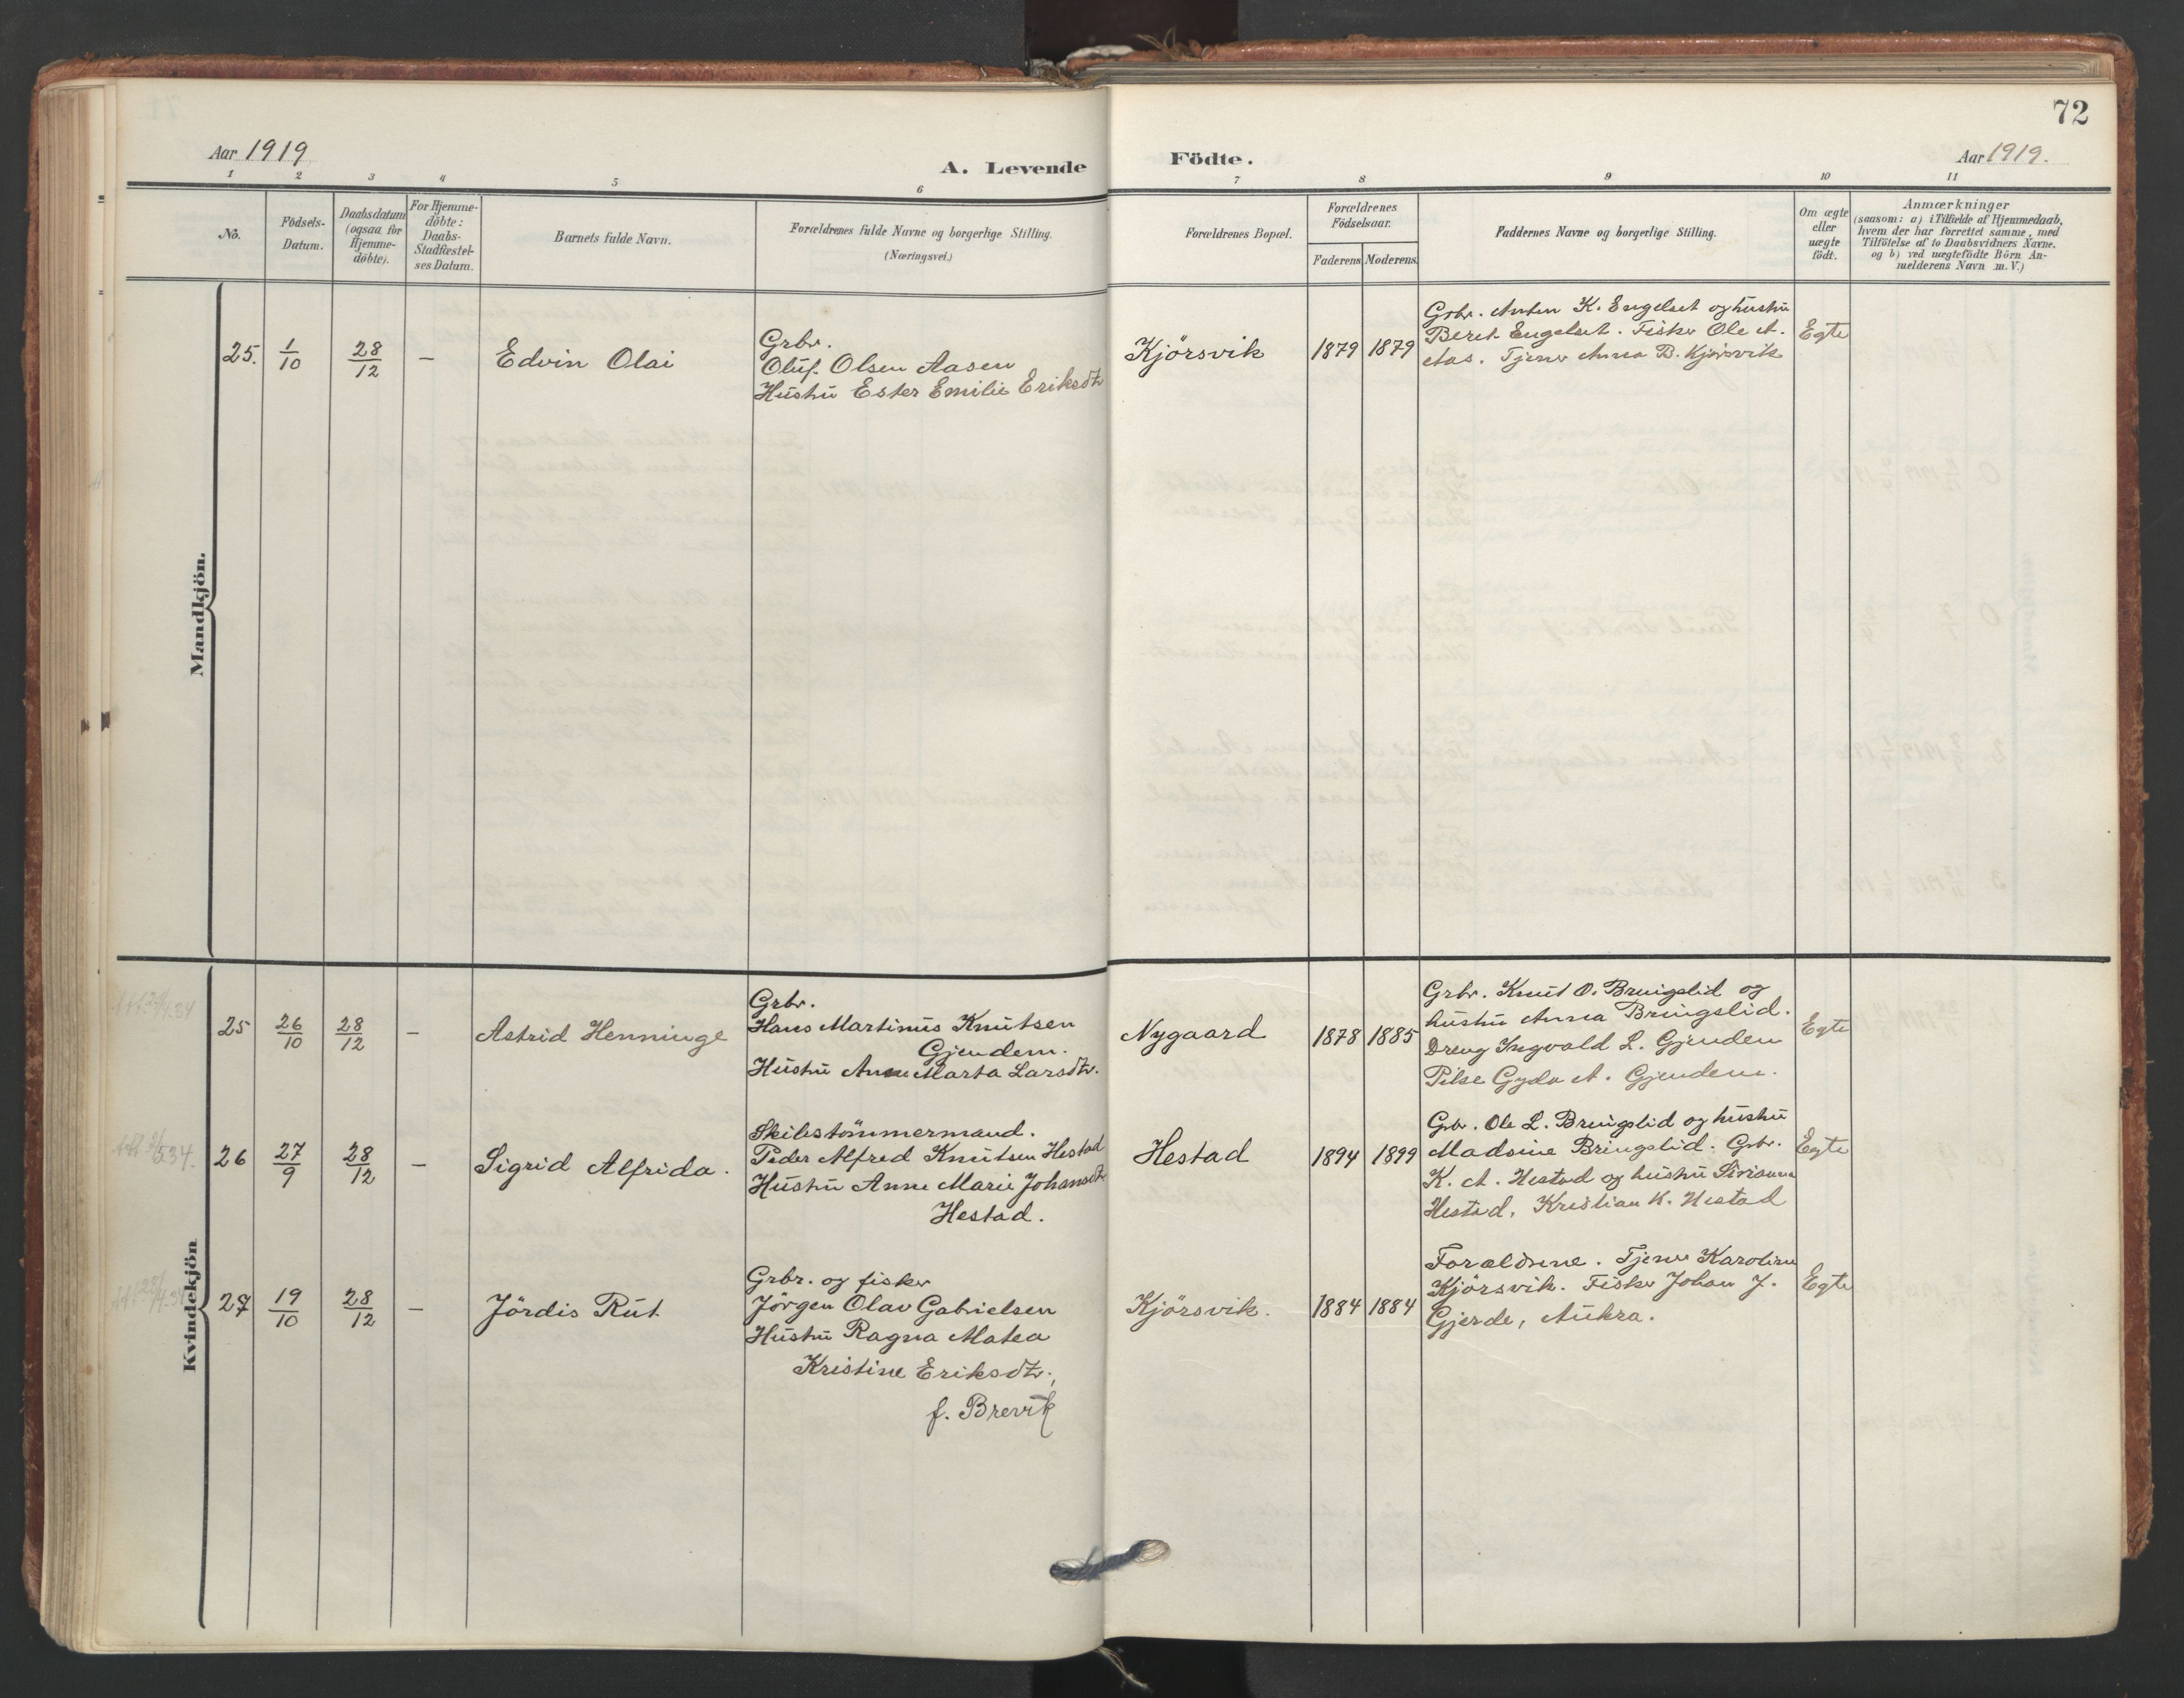 72
Aar 1919
A. Levende Födte.
Aar 1919.
1 2 3 4 5 6 7 8 9 10 11
No.
Födsels-
Datum.
Daabsdatum
(ogsaa for
Hjemme-
döbte).
For Hjemme-
döbte:
Daabs-
Stadfæstel-
ses Datum.
Barnets fulde Navn.
Forældrenes fulde Navne og borgerlige Stilling.
(Næringsvei.)
Forældrenes Bopæl.
Forældrenes
Födselsaar.
Faderens. Moderens.
Faddernes Navne og borgerlige Stilling.
Om ægte
eller
uægte
födt.
Anmærkninger
(saasom: a) i Tilfælde af Hjemmedaab,
hvem der har forrettet samme, med
Tilföielse af to Daabsvidners Navne.
og b) ved uægtefödte Börn An-
melderens Navn m. V.)
Mandkjön.
25. 1/10 28/12 — Edvin Olai
Grbr.
Oluf Olsen Aasen
Hustru Ester Emilie Eriksdtr
Kjörsvik 1879 1879
Grbr. Anton K. Engelset og hustru
Beret Engelset. Fisker Ole A.
Aas. Tjener Anna B. Kjörsvik
Egte
Kvindekjön
25 26/10 28/12 — Astrid Henninge
Grbr.
Hans Martinus Knutsen
Gjendem.
Hustru Anne Marta Larsdtr.
Nygaard 1878 1885
Grbr. Knut O. Bringslid og
hustru Anna Bringslid.
Dreng Ingvald L. Gjendem
Pike Gyda A. Gjendem.
Egte
26 27/9 28/12 — Sigrid Alfrida.
Skibstömmermand.
Peder Alfred Knutsen Hestad
Hustru Anne Marie Johansdtr.
Hestad.
Hestad 1894 1899
Grbr. Ole L. Bringslid og hustru
Madsine Bringslid. Grbr.
K. A. Hestad og hustru
Hestad, Kristian K. Hestad
Egte
27 19/10 28/12 — Jördis Rut
Grbr. og fisker
Jörgen Olav Gabrielsen
Hustru Ragna Matea
Kristine Eriksdtr.,
f. Brevik
Kjörsvik. 1884 1884
Forældrene. Tjener Karoline
Kjörsvik. Fisker Johan J.
Gjerde, Aukra.
Egte